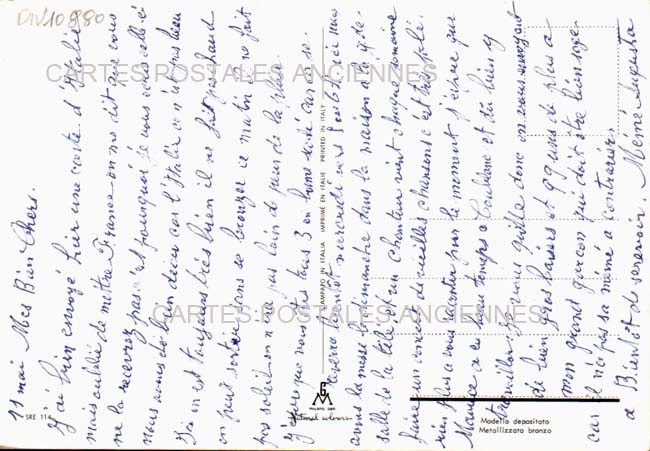 DIV10880
CARTES POSTALES ANCIENNES
CARTES POSTALES ANCIENNES
11 mai Mes Bien Chers.
J'ai bien envoyé hier une carte d'Italie
mais oublié de mettre France on me dit que vous
ne la recevrez pas c'est pourquoi je vous envoie celle ci
nous avons de loin décu car l'Italie ce n'est pas beau
Ici on est toujours très bien il ne fait pas chaud
on peut sortir sans se bronzer ce matin il ne fait
pas soleil on n'ira pas loin de peur de la pluie
J'espère que vous êtes tous 3 en bonne santé car ce se-
nous
avons la messe le dimanche dans la maison à la gde
salle de la télé et un chanteur vient chaque semaine
faire un concert de vieilles chansons c'est très joli.
rien plus à vous raconter pour le moment j'espère que
Maurice a eu beau temps à et du bien y
travailler. Je vous quitte donc en vous envoyant
de bien gros baisers et 99 uns de plus a
mon grand garçon qui doit être bien sage
car il n'a pas sa mémé à contrarier.
a Bientôt de se revoir. Mémé Augusta
SRE 114
PRINTED IN ITALY
IMPRIMÉ EN ITALIE
STAMPATO IN ITALIA
GM
MILANO DEP.
Modello depositato
Metallizzato bronzo